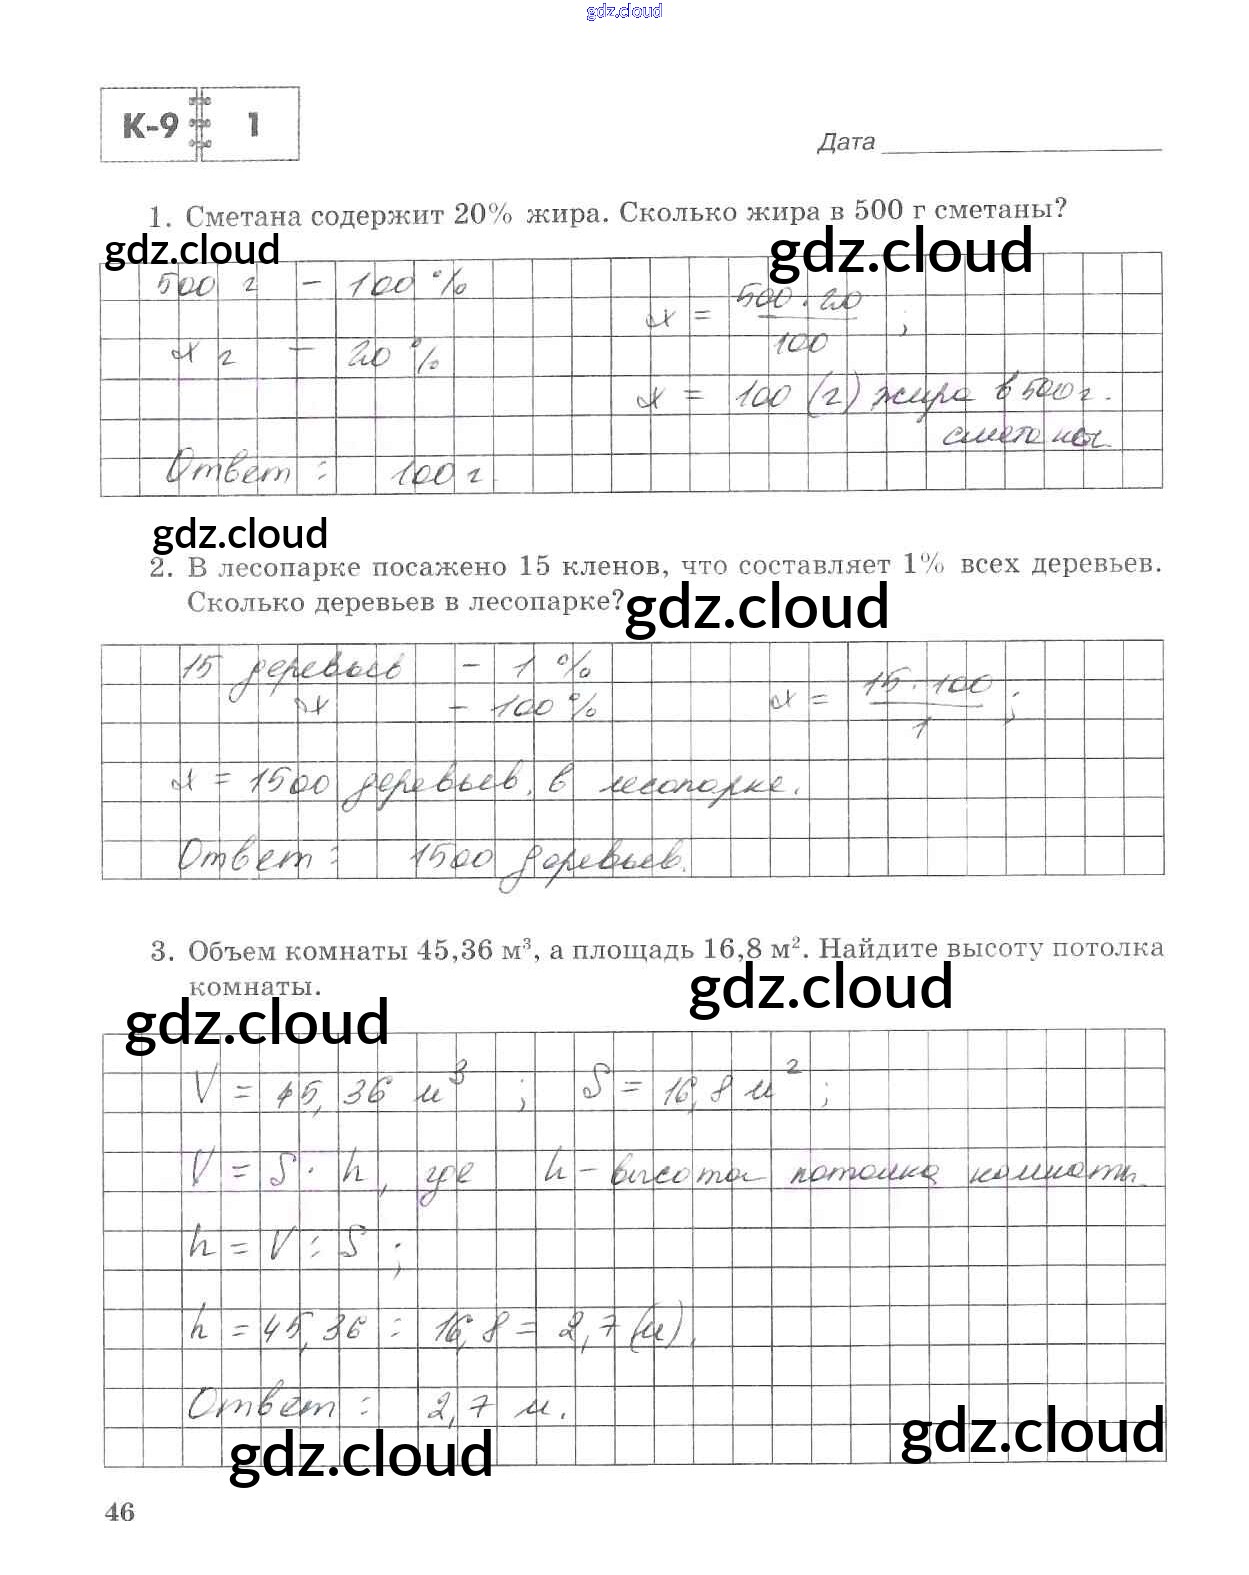 gdz.cloud
К-9 1
Дата
1. Сметана содержит 20% жира. Сколько жира в 500 г сметаны?
gdz.cloud gdz.cloud
500 г - 100 %
x = 500 · 20 / 100 ;
x г - 20 %
x = 100 (г) жира в 500 г.
сметаны
Ответ : 100 г.
gdz.cloud
2. В лесопарке посажено 15 кленов, что составляет 1% всех деревьев.
Сколько деревьев в лесопарке?
gdz.cloud
15 деревьев - 1 %
x - 100 %
x = 15 · 100 / 1 ;
x = 1500 деревьев в лесопарке.
Ответ : 1500 деревьев.
3. Объем комнаты 45,36 м³, а площадь 16,8 м². Найдите высоту потолка
комнаты.
gdz.cloud gdz.cloud
V = 45,36 м³ ; S = 16,8 м² ;
V = S · h, где h - высота потолка комнаты.
h = V : S ;
h = 45,36 : 16,8 = 2,7 (м).
Ответ : 2,7 м.
gdz.cloud gdz.cloud
46